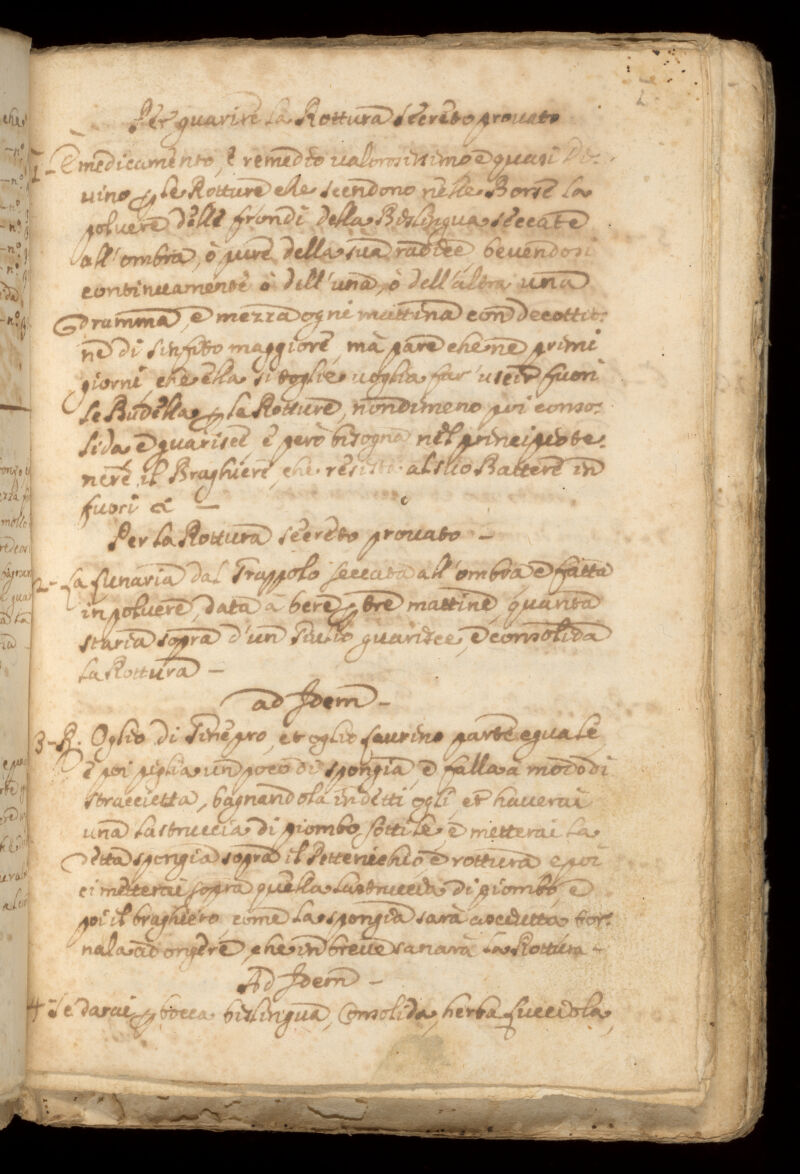 Per guarire la Rottura secreto provato
1 - È medicamento, e remedio valorosissimo e quasi Di-
vino per le Rotture che scendono nelle Borse la
polvere delle frondi della Bislingua seccate
all'ombra, ò pure della sua radice bevendosi
continuamente ò dell'una, ò dell'altra una
dramma, e mezza ogni mattina con decottio:
ne di sinfito maggiore, mà pare che ne primi
giorni, che ella si toglie voglia far uscir fuori
le Budella per le Rotture, nondimeno poi conso:
lida e guarisce, e però bisogna nel principio te:
nere il Braghiere, che resista al suo Battere in
fuori &
Per la Rottura secreto provato -
2 - La Lunaria dal Grappolo seccata all'ombra e fatta
in polvere, data à bere per tre mattine, quanta
staria sopra d'un Giulio guarisce, e consolida
la Rottura -
ad Idem -
3 - R. Oglio di Ginepro, et oglio Laurino parte eguale
e poi piglia un poco di spongia, e falla a modo di
straccietta, bagnandola in detti ogli et haverai
una lastruccia di piombo sottile, e metterai la
detta spongia sopra il Pettenicchio, e rottura e poi
ci metterai sopra quella lastruccia di piombo, e
poi il braghiero, come la spongia sarà asciutta tor:
nala ad ongere, che in breve sanarà la Rottura -
Ad Idem -
4 - Se darai per bocca bislingua, Consolida, herba Lucciola,